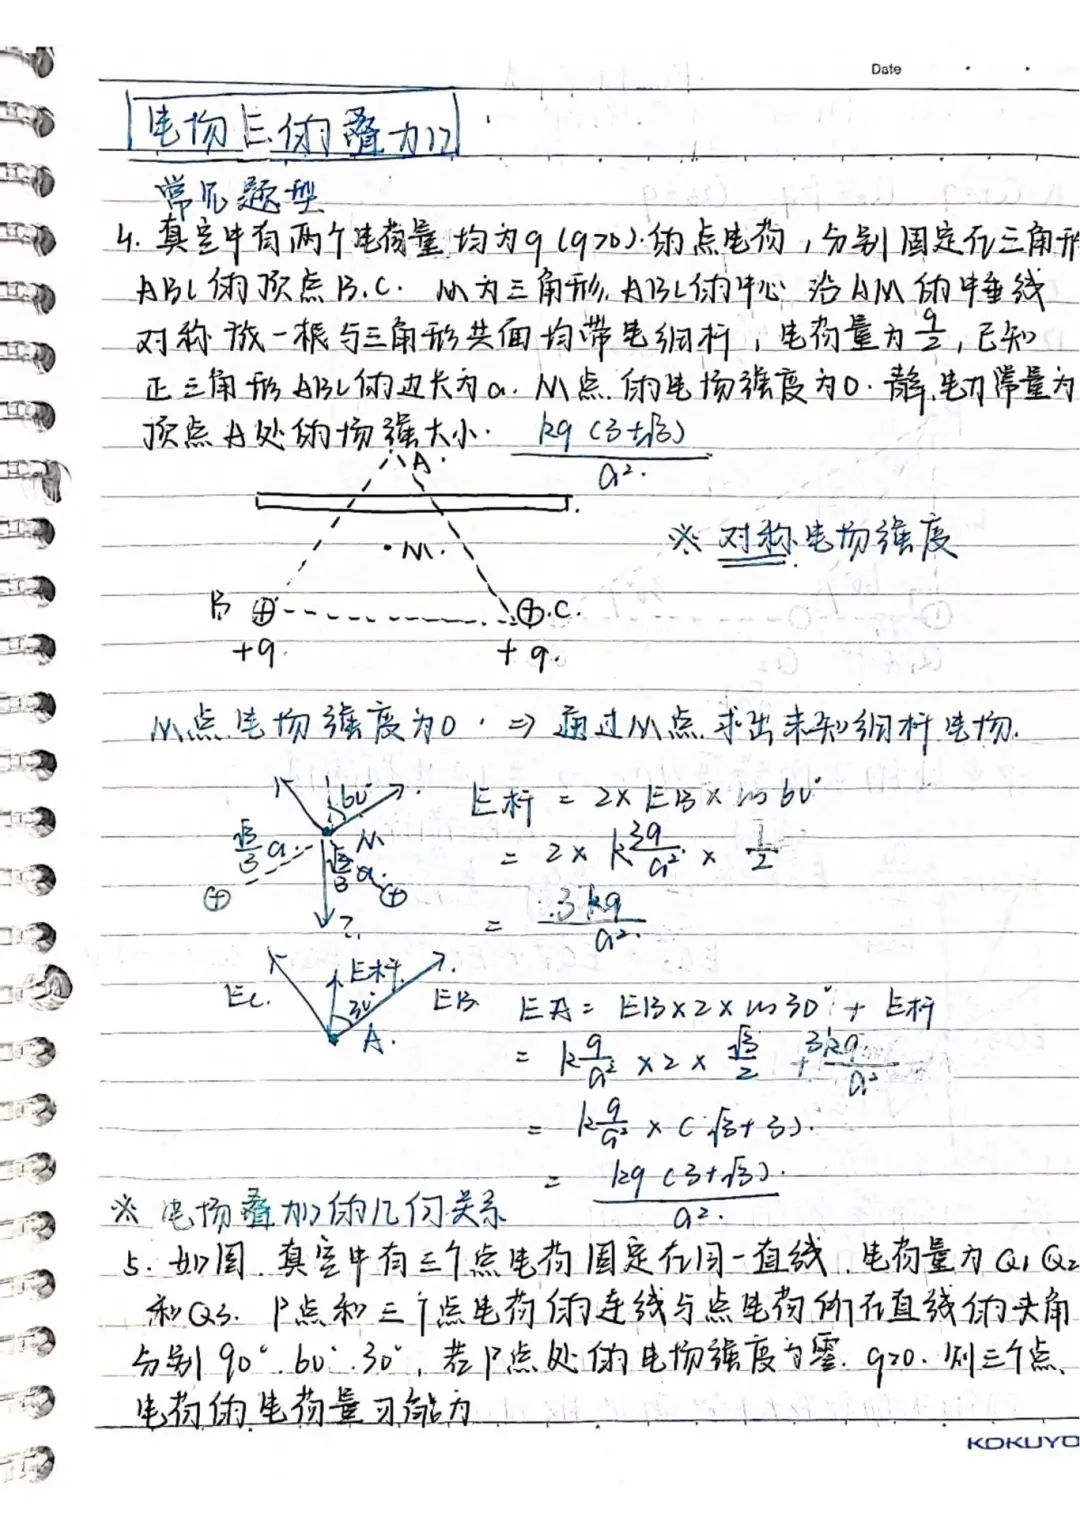 Date
电场E的叠加
常见题型
4. 真空中有两个电荷量均为q(q>0)的点电荷,分别固定在三角形
ABC的顶点B.C. M为三角形ABC的中心 沿AM的中垂线
对称放一根与三角形共面均带电细杆,电荷量为q/2,已知
正三角形ABC的边长为a. M点的电场强度为0. 静电力常量为
顶点A处的场强大小. kq(3+√3)/a².
A.
※ 对称电场强度
·M.
B ⊕ ⊕.C.
+q. +q.
M点电场强度为0. ⇒ 通过M点求出未知细杆电场.
60° E杆 = 2×EB×cos60°
√3/3 a. M √3/3 a. = 2×k 3q/a² × 1/2
⊕ ⊕ = 3kq/a².
EC. E杆. 30° EB A.
EA = EB×2×cos30°+E杆
= k q/a² ×2× √3/2 + 3kq/a²
= k q/a² ×(√3+3).
= kq(3+√3)/a².
※ 电场叠加的几何关系
5. 如图.真空中有三个点电荷固定在同一直线.电荷量为Q1 Q2
和Q3. P点和三个点电荷的连线与点电荷所在直线的夹角
分别90°.60°.30°,若P点处的电场强度为零.q>0.则三个点
电荷的电荷量可能为
KOKUYO